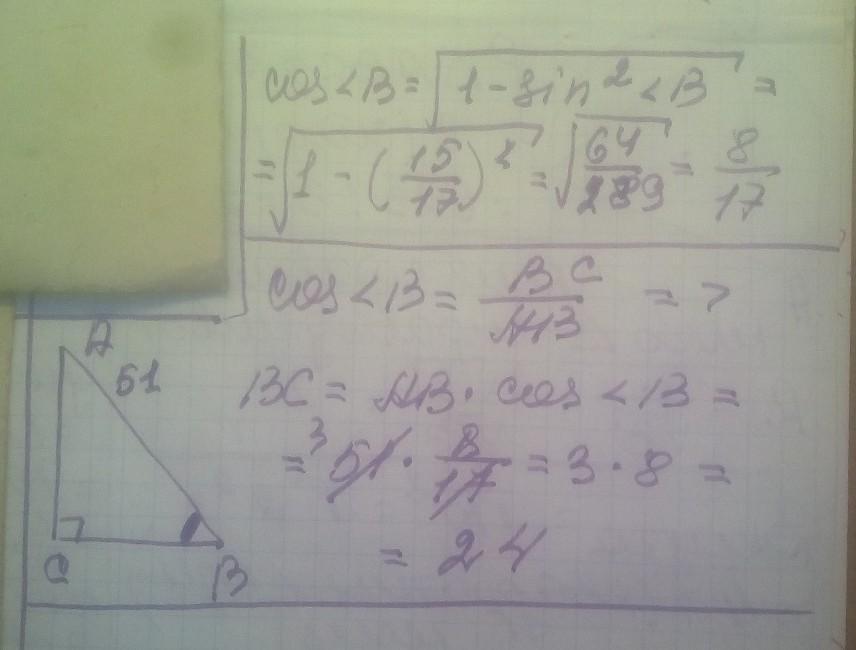 cos<B = √(1 - sin²<B) =
= √(1 - (15/17)²) = √(64/289) = 8/17
cos<B = BC/AB =>
A
51
C
B
BC = AB · cos<B =
= ³51 · 8/17 = 3 · 8 =
= 24